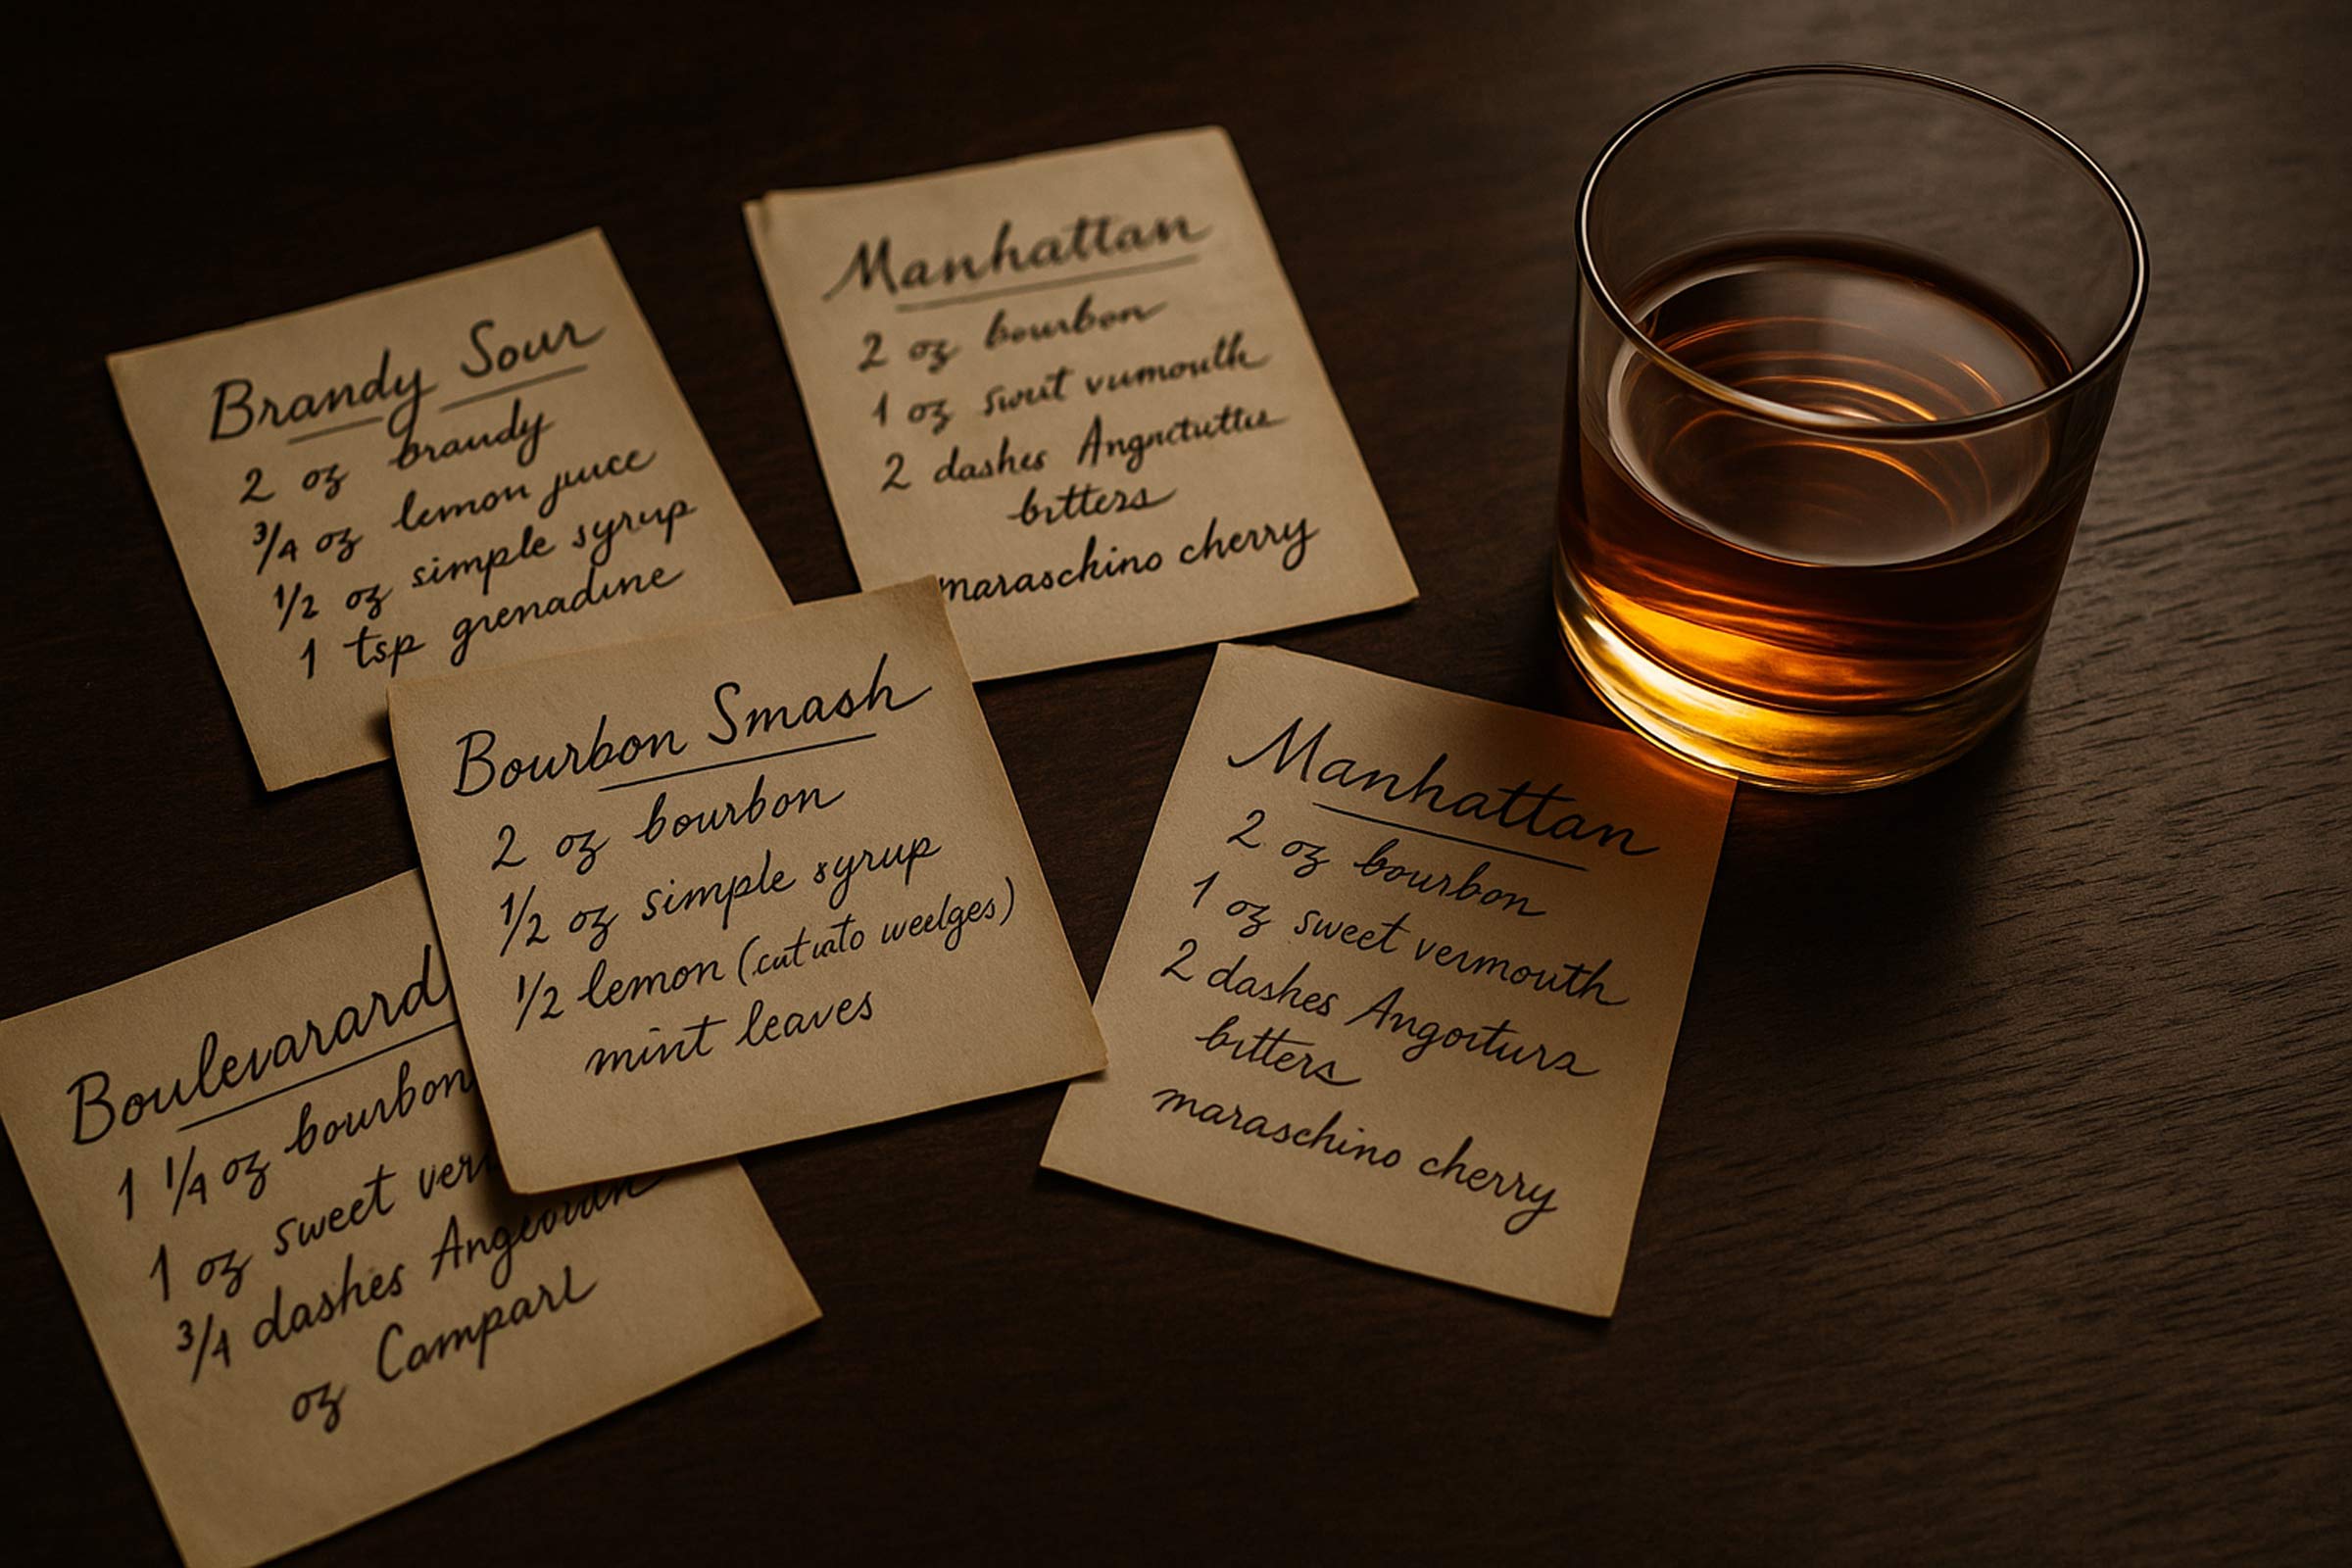 Brandy Sour
2 oz brandy
3/4 oz lemon juice
1/2 oz simple syrup
1 tsp grenadine
Manhattan
2 oz bourbon
1 oz
2 dashes
bitters
maraschino cherry
Bourbon Smash
2 oz bourbon
1/2 oz simple syrup
1/2 lemon (cut into wedges)
mint leaves
Manhattan
2 oz bourbon
1 oz sweet vermouth
2 dashes Angoitura
bitters
maraschino cherry
Boulevarard
1 1/4 oz bourbon
1 oz sweet ver
3/4 dashes
oz Campari